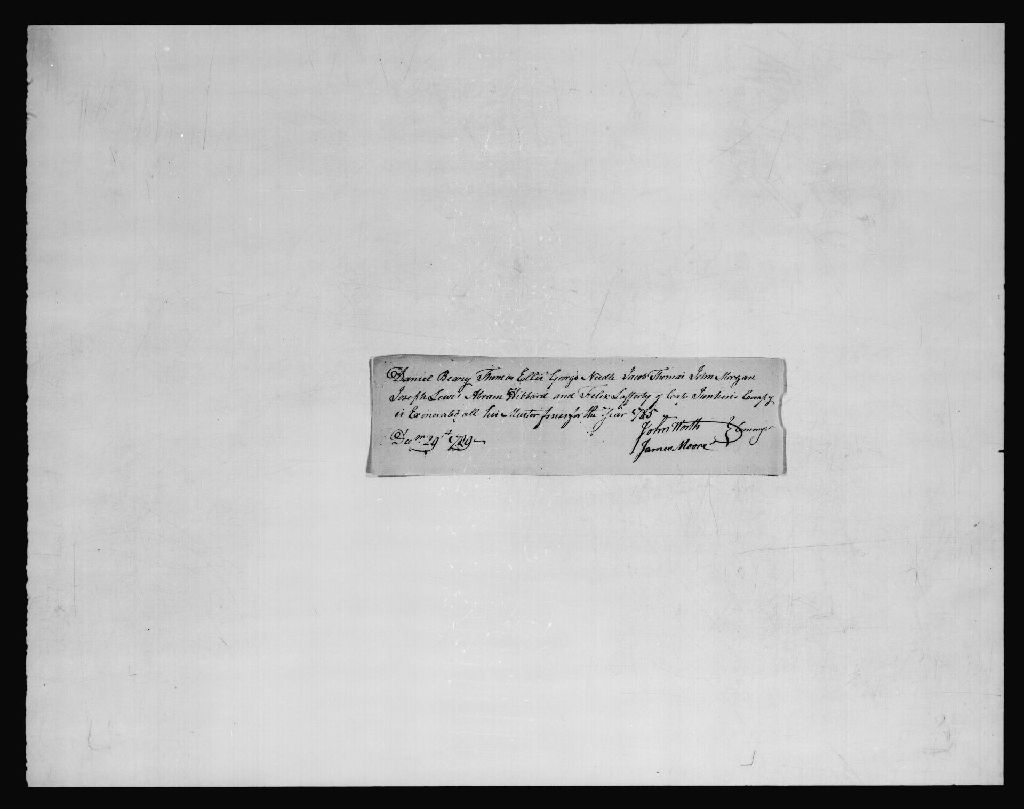 Daniel Beary Thomas Ellis George Needle Jacob Thomas John Morgan
Joseph Lewis Abram Hibbard and Felix Lafferty of Capt Jenkins Comp.y
is Exonerated all their Muster fines for the Year 1785
Jan.r 29th 1789
John Worth
James Moore